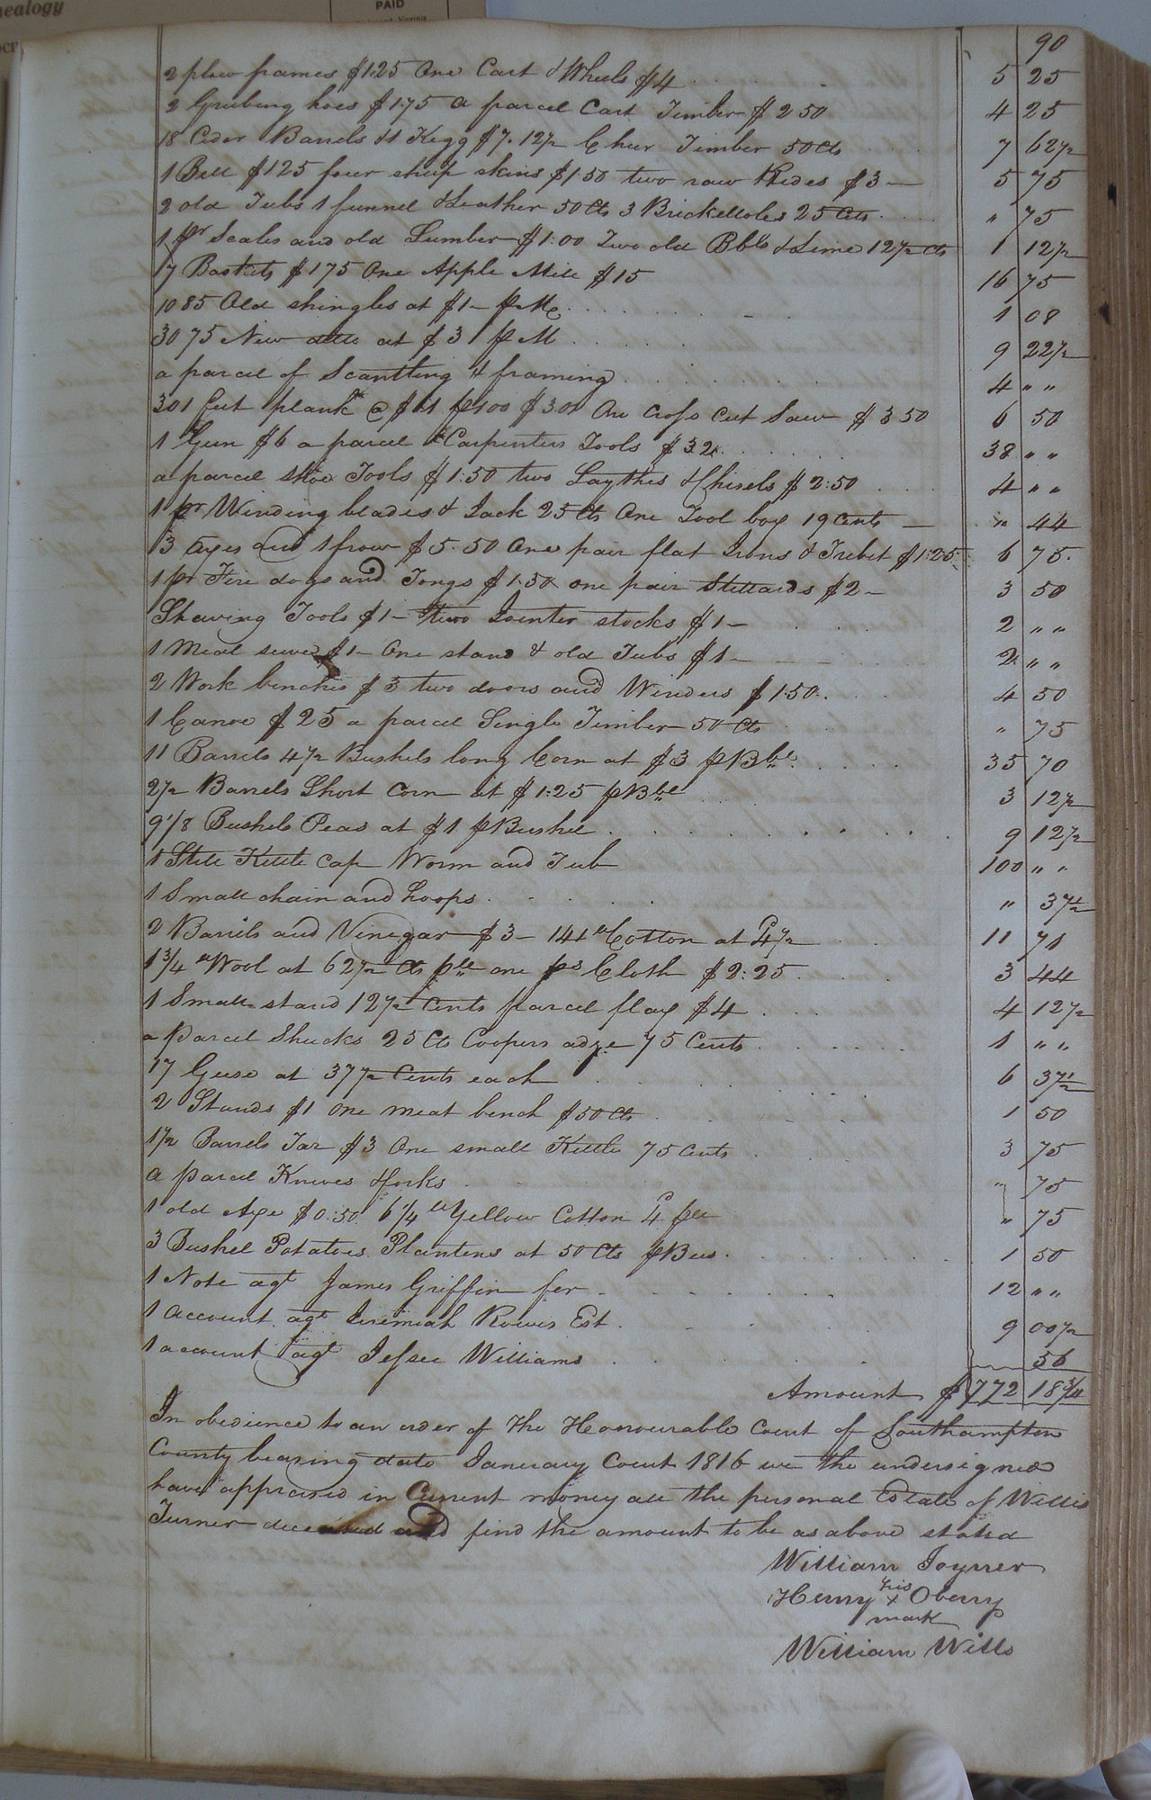 nealogy
PAID
90
2 plow frames $1.25 One Cart & Wheels $4 5 25
2 Grubing hoes $1.75 a parcel Cart Timber $2 50 4 25
18 Ceder Barrels & 1 Kegg $7.12½ Chur Timber 50 Cts 7 62½
1 Bell $1 25 four sheep skins $1.50 two raw Hides $3 — 5 75
2 old Tubs 1 funnel & Leather 50 Cts 3 Brickmoles 25 Cts " 75
1 pr Scales and old Lumber $1.00 Two old Bbls & Lime 12½ cts 1 12½
17 Baskets $1 75 One Apple Mill $15 16 75
1085 Old shingles at $1 – p M 1 08
3075 New ditto at $3 p M 9 22½
a parcel of Scantling & framing 4 " "
301 feet plank @ $1 p 100 $3.00 One Cross Cut Saw $3 50 6 50
1 Gun $6 a parcel Carpenters Tools $32 38 " "
a parcel shoe Tools $1:50 two Laythes & Chisels $2:50 4 " "
1 pr Winding blades & Jack 25 Cts One Tool box 19 Cents — " 44
3 Axes and 1 frow $5.50 One pair flat Irons & Trebit $1:25 6 75
1 pr Fire dogs and Tongs $1.50 one pair Stillards $2 – 3 50
Shaving Tools $1 – two Jointer stocks $1 – 2 " "
1 Meal sieve $1 – One stand & old Tubs $1 – 2 " "
2 Work benches $3 two doors and Winders $1.50 4 50
1 Canoe $25 a parcel Single Timber 50 Cts " 75
11 Barrels 4½ Bushels long Corn at $3 p Bbl 35 70
2½ Barrels Short Corn at $1:25 p Bbl 3 12½
9 1/8 Bushels Peas at $1 p Bushel 9 12½
1 Still Kettle cap Worm and Tub 100 " "
1 Small chain and hoops " 37½
2 Barrils and Vinegar $3 – 141 lb Cotton at 4½ 11 71
1 3/4 lb Wool at 62½ Cts p lb one ps Cloth $2:25 3 44
1 Small stand 12½ Cents parcel flax $4 4 12½
a parcel Shucks 25 Cts Coopers adze 75 Cents 1 " "
17 Geese at 37½ Cents each 6 37½
2 Stands $1 one meat bench $50 Cts 1 50
1½ Barrels Tar $3 One small Kettle 75 Cents 3 75
a parcel Knives & forks " 75
1 old Axe $0:50 6 1/4 lb Yellow Cotton 4 p lb " 75
3 Bushel Potatoes Plantens at 50 Cts p Bus 1 50
1 Note agt James Griffin for 12 " "
1 account agt Jeremiah Rowes Est 9 00½
1 account agt Jessee Williams 56
Amount $772 18 3/4
In obedience to an order of the Honourable Court of Southampton
County bearing date January Court 1816 we the undersigned
have appraised in Current money all the personal Estate of Willis
Turner deceased and find the amount to be as above stated
William Joyner
Henry his x mark Oberry
William Wills